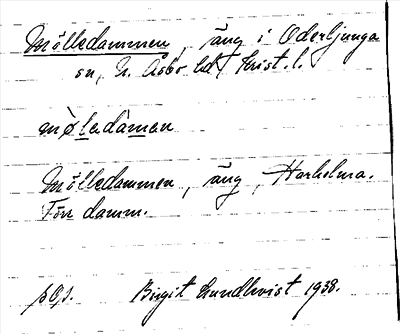 Mölledammen, äng i Oderljunga
sn, N. Åsbo hd, Krist. l.
mø̀ledàmen
Mölledammen, äng, Harholma.
Förr damm.
Birgit Lundkvist 1938.